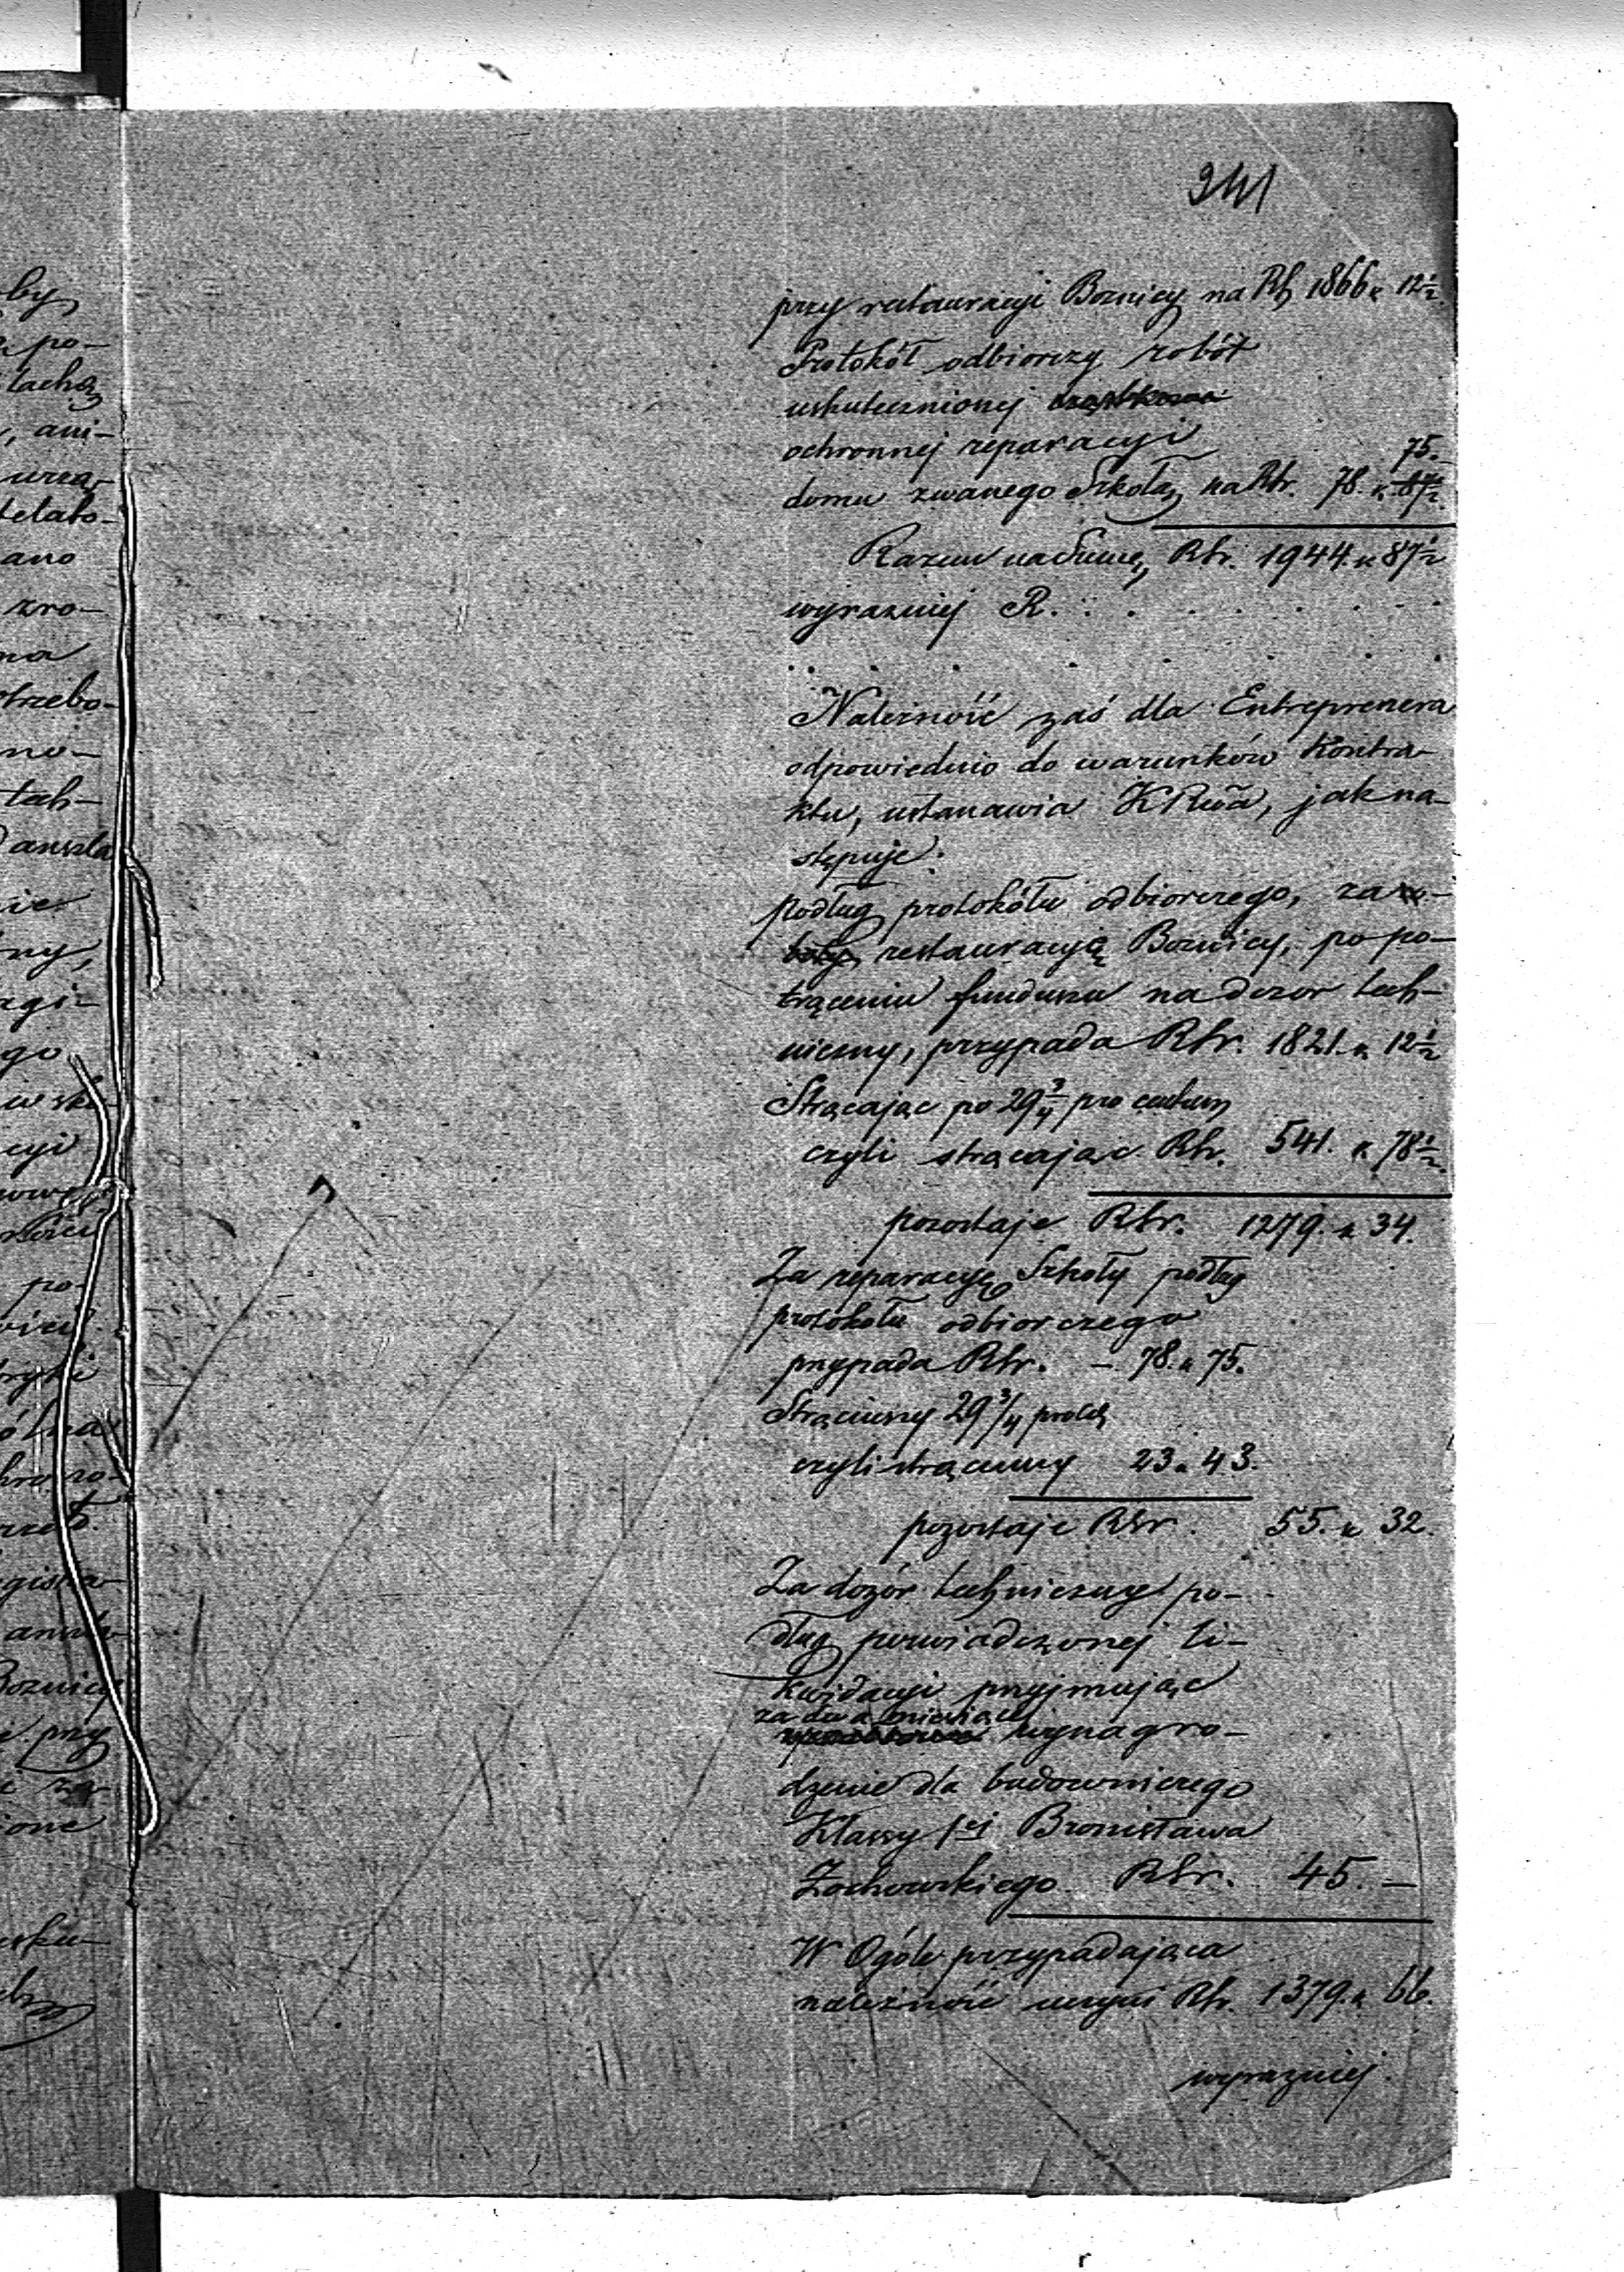 241
przy restauracyi Boznicy na Rb 1866 k 12½
Protokół odbiorczy robót
uskutecznionej
ochronnej reparacyi
75.
domu zwanego Szkołą, na Rbr. 78. k. 87½
Razem na Summę, Rbr. 1944. k 87½
wyrazniej R. . . . . . . . .
. . . . . . . .
Należność zaś dla Entreprenera
odpowiednio do warunków Kontra-
ktu, ustanawia K Rwa, jak na-
stępuje:
podług protokółu odbiorczego, za ro-
boty restauracyją Boznicy, po po-
trąceniu funduszu na dozor tech-
niczny, przypada Rbr. 1821. k 12½
Strącając po 29¾ pro centum
czyli strącając Rbr. 541. k 78½
pozostaje Rbr. 1279. k 34.
Za reparacyę Szkoły podług
protokołu odbiorczego
przypada Rbr. – 78. k 75.
Strąciwszy 29 3/4
czyli strącamy 23 k 43.
pozostaje Rbr. 55. k 32.
Za dozór techniczny po-
dług poswiadczonej li-
kwidacyi przyjmując
za dwa miesiące
wynagro-
dzenie dla budowniczego
Klassy 1ej Bronisława
Żochowskiego Rbr. 45. –
W Ogóle przypadająca
należność czyni Rbr. 1379. k 66.
wyrazniej
by
po-
lachą
, ani-
urzą-
telato-
ano
zro-
na
trzebo-
no-
tech-
anszla
nie
ny,
agi-
go
cyi
po-
ólna
Boznicy
przy
ione